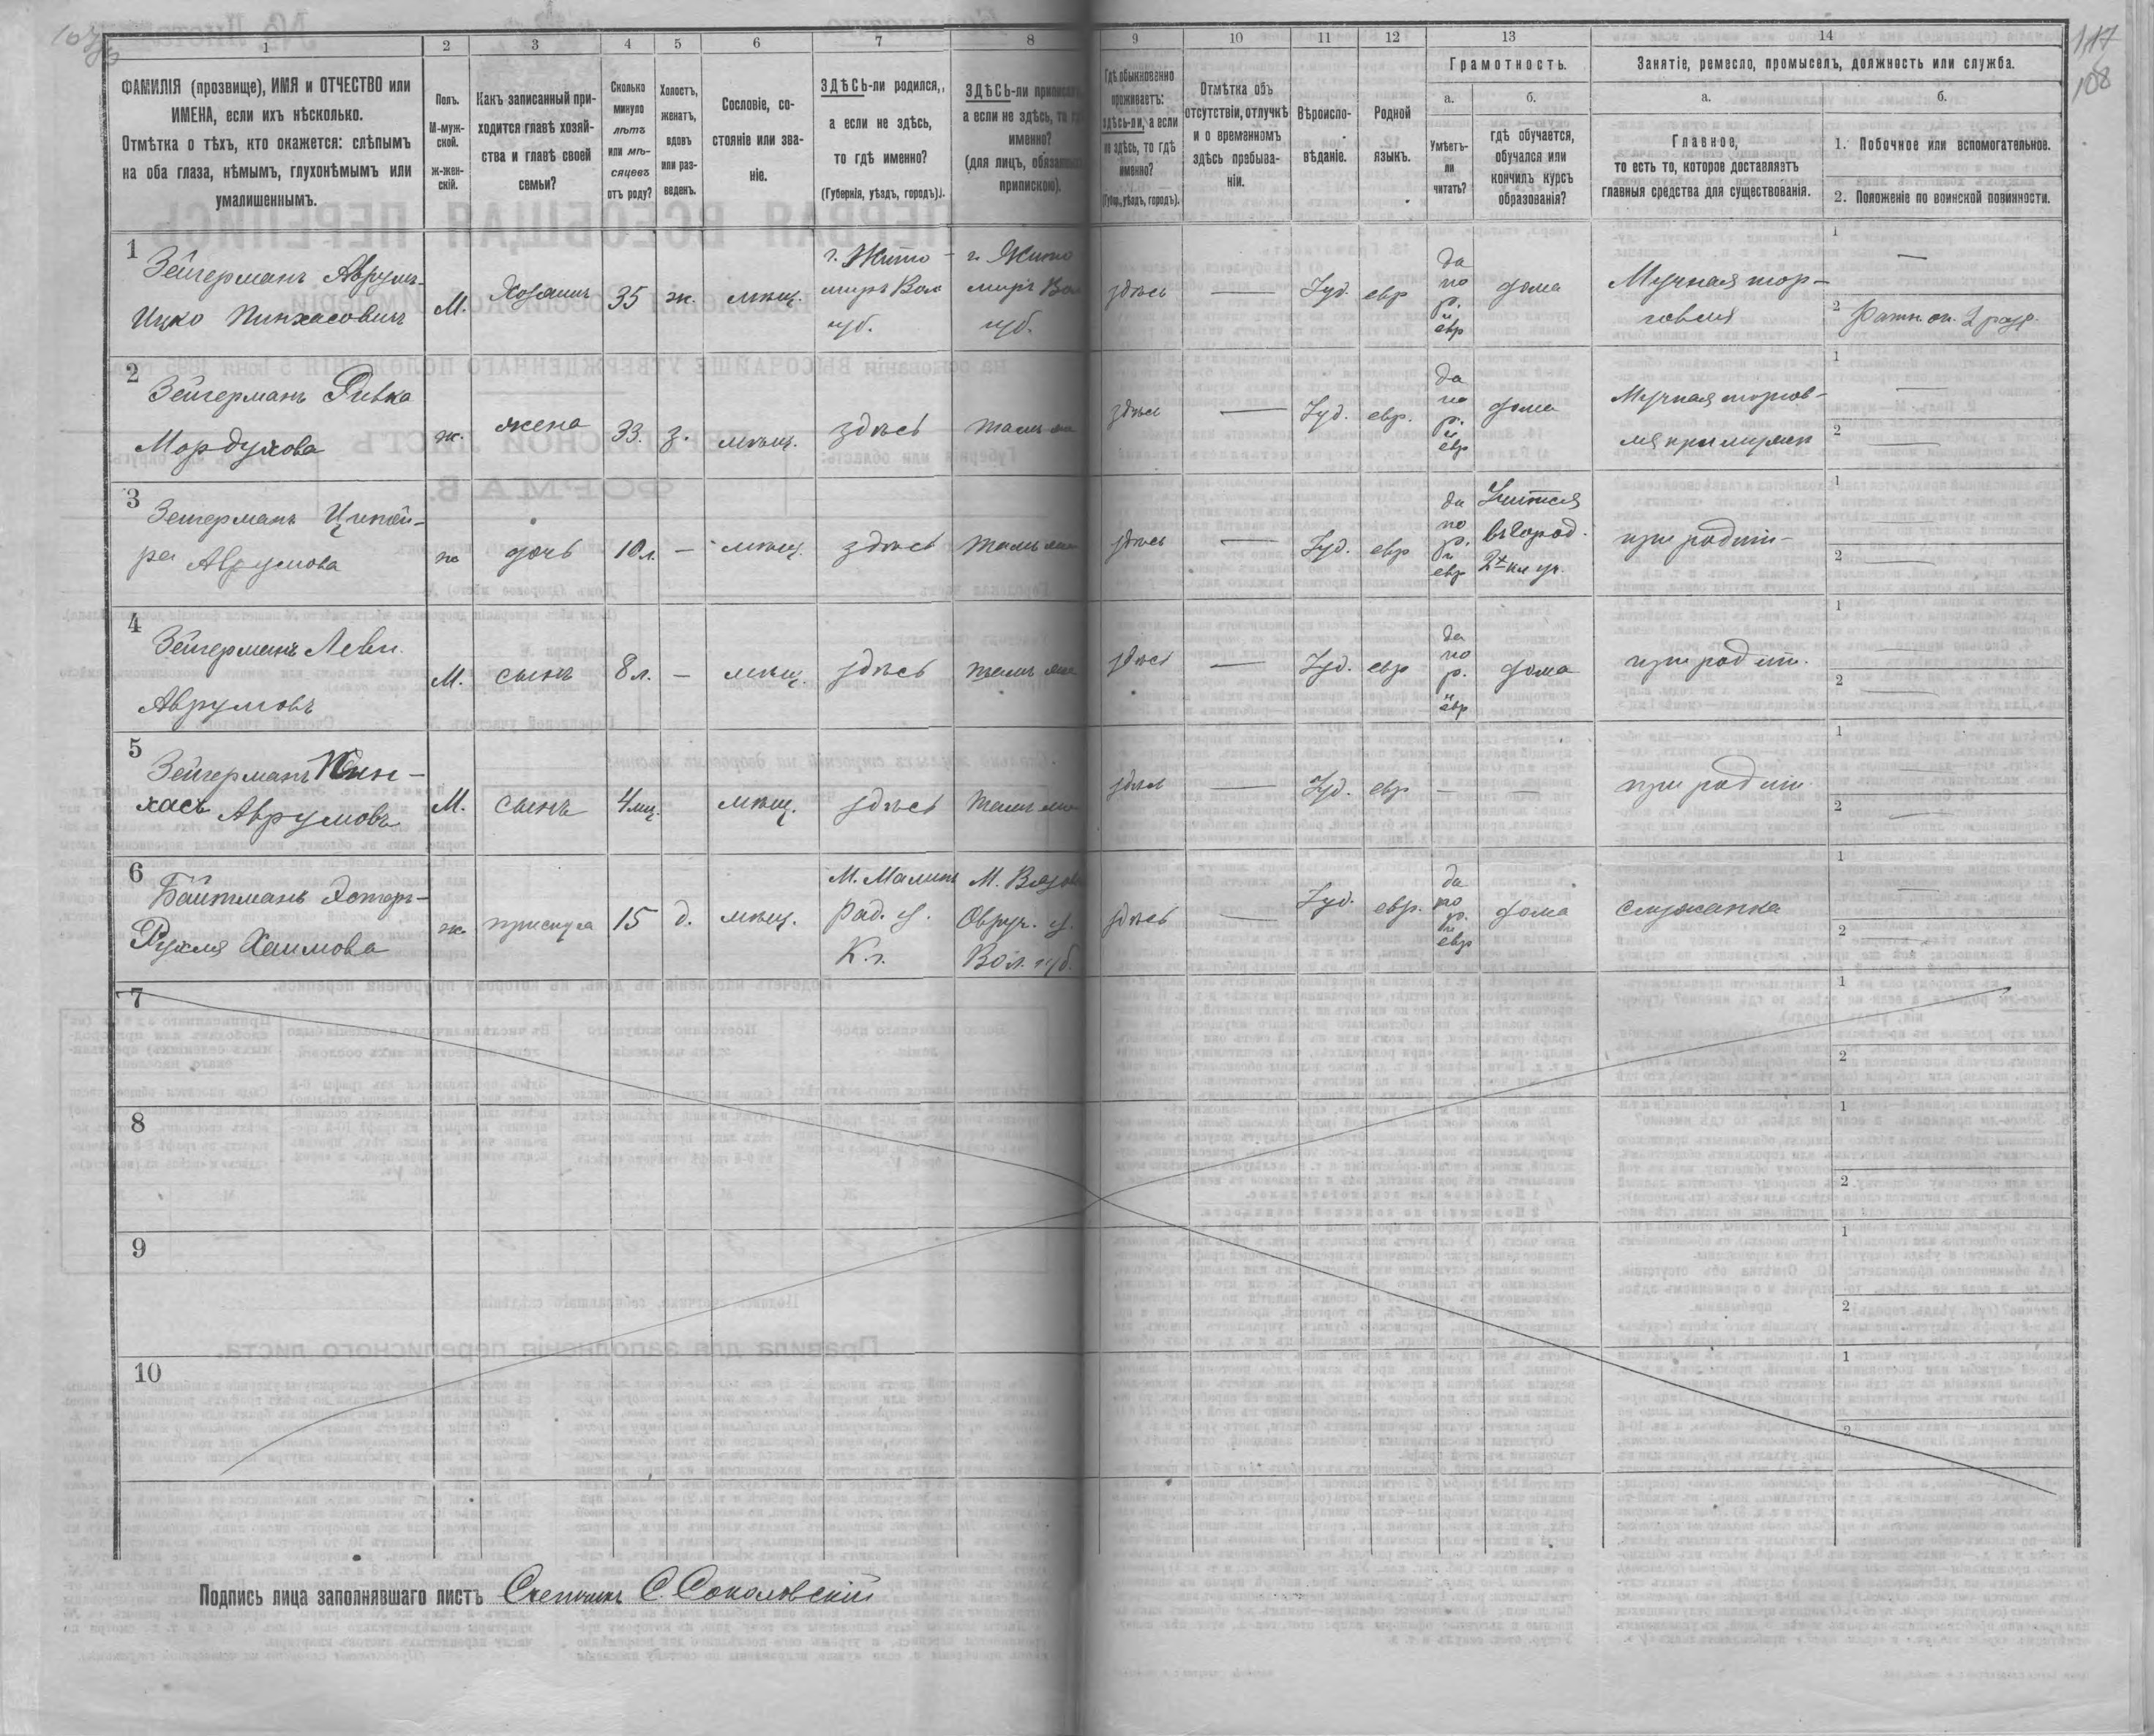 117
108
1
2
3
4
5
6
7
8
9
10
11
12
13
14
ФАМИЛІЯ (прозвище), ИМЯ и ОТЧЕСТВО или
ИМЕНА, если ихъ нѣсколько.
Отмѣтка о тѣхъ, кто окажется: слѣпымъ
на оба глаза, нѣмымъ, глухонѣмымъ или
умалишеннымъ.
Полъ.
М-муж-
ской.
ж-жен-
скій.
Какъ записанный при-
ходится главѣ хозяй-
ства и главѣ своей
семьи?
Сколько
минуло
лѣтъ
или мѣ-
сяцевъ
отъ роду?
Холостъ,
женатъ,
вдовъ
или раз-
веденъ.
Сословіе, со-
стояніе или зва-
ніе.
ЗДѢСЬ-ли родился,
а если не здѣсь,
то гдѣ именно?
(Губернія, уѣздъ, городъ).
ЗДѢСЬ-ли
а если не здѣсь,
именно?
(для лицъ,
припискою).
Гдѣ обыкновенно
проживаетъ:
здѣсь-ли, а если
не здѣсь, то гдѣ
именно?
(Губ., уѣздъ, городъ).
Отмѣтка объ
отсутствіи, отлучкѣ
и о временномъ
здѣсь пребыва-
ніи.
Вѣроиспо-
вѣданіе.
Родной
языкъ.
Грамотность.
а.
Умѣетъ-
ли
читать?
б.
гдѣ обучается,
обучался или
кончилъ курсъ
образованія?
Занятіе, ремесло, промыселъ, должность или служба.
а.
Главное,
то есть то, которое доставляетъ
главныя средства для существованія.
б.
1. Побочное или вспомогательное.
2. Положеніе по воинской повинности.
1
Зейгерманъ Аврумъ-
Ицко Пинхасовичъ
М.
Хозяинъ
35
ж.
мѣщ.
г. Жито-
миръ Вол
губ.
г. Жито
миръ Во
губ.
здѣсь
—
Іуд.
евр
да
по
р.
и
евр
дома
Мучная тор-
говля
1
—
2
Ратн. оп. 2 разр.
2
Зейгерманъ Ривка
Мордухова
ж.
жена
33.
з.
мѣщ.
здѣсь
тамъ же
здѣсь
—
Іуд.
евр.
да
по
р.
и
евр
дома
Мучная торгов-
ля при мужѣ
1
—
2
—
3
Зейгерманъ Ципой-
ра Аврумова
ж
дочь
10 л.
—
мѣщ.
здѣсь
тамъ же
здѣсь
—
Іуд.
евр
да
по
р.
и
евр
Учится
въ город.
2х кл уч.
при родит-
1
—
2
—
4
Зейгерманъ Леви
Аврумовъ
М.
сынъ
8 л.
—
мѣщ.
здѣсь
тамъ же
здѣсь
—
Іуд.
евр
да
по
р.
и
евр
дома
при родит.
1
—
2
—
5
Зейгерманъ Пин-
хасъ Аврумовъ
М.
сынъ
4 мц.
мѣщ.
здѣсь
тамъ же
здѣсь
—
Іуд.
евр
—
—
при родит.
1
—
2
—
6
Бойтманъ Эстеръ-
Рухля Хаимова
ж.
прислуга
15
д.
мѣщ.
М. Малинъ
Рад. у.
К. г.
М.
Овруч. у.
Вол. губ.
здѣсь
—
Іуд.
евр.
да
по
р.
и
евр
дома
служанка
1
—
2
—
7
1
2
8
1
2
9
1
2
10
1
2
Подпись лица заполнявшаго листъ Счетчикъ С. Соколовскій